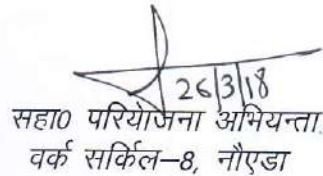 26/3/18
सहा0 परियोजना अभियन्ता
वर्क सर्किल–8, नौएडा